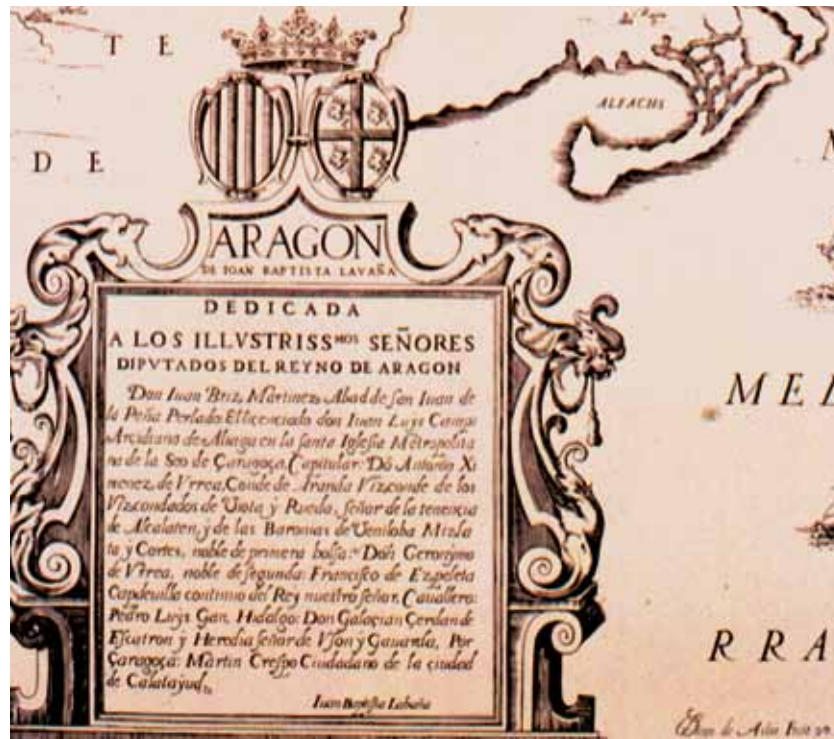 T E
D E
ALFACHS
ARAGON
DE IOAN BAPTISTA LAVAÑA
DEDICADA
A LOS ILLVSTRISS^MOS SEÑORES
DIPVTADOS DEL REYNO DE ARAGON
Don Iuan Briz Martinez Abad de san Iuan de
la Peña Perlado. El licenciado don Iuan Luys
Arcidiano de Aliaga en la santa Iglesia Metropolita
na de la Seo de Çaragoça, Capitular: Dõ Antonio Xi
menez de Vrrea, Conde de Aranda Vizconde de los
Vizcondados de Viota y Rueda, señor de la tenencia
de Alcalaten, y de las Baronias de Mizla
ta y Cortes, noble de primera bolsa: Don Geronymo
de Vrrea, noble de segunda: Francisco de Ezpeleta
Capdeuilla continuo del Rey nuestro señor, Cauallero:
Pedro Luys Gan, Hidalgo: Don Galaçian Çerdan de
Escatron y Heredia señor de Vson y Gauarda, Por
Çaragoça: Martin Crespo Ciudadano de la ciudad
de Calatayud,
Iuan Baptista Labaña
M
MED
RRA